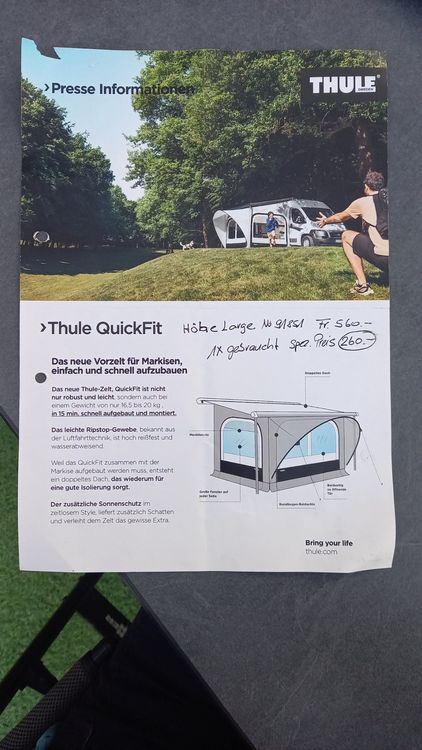 ›Presse Informationen
THULE®
SWEDEN
›Thule QuickFit
Höhe Large No 91851 Fr. 560.-
1x gebraucht spez. Preis 260.-
Das neue Vorzelt für Markisen,
einfach und schnell aufzubauen
Das neue Thule-Zelt, QuickFit ist nicht
nur robust und leicht, sondern auch bei
einem Gewicht von nur 16,5 bis 20 kg
in 15 min. schnell aufgebaut und montiert.
Das leichte Ripstop-Gewebe, bekannt aus
der Luftfahrttechnik, ist hoch reißfest und
wasserabweisend.
Weil das QuickFit zusammen mit der
Markise aufgebaut werden muss, entsteht
ein doppeltes Dach, das wiederum für
eine gute Isolierung sorgt.
Der zusätzliche Sonnenschutz im
zeitlosem Style, liefert zusätzlich Schatten
und verleiht dem Zelt das gewisse Extra.
Doppeltes Dach
Große Fenster auf
jeder Seite
Tür
Bring your life
thule.com